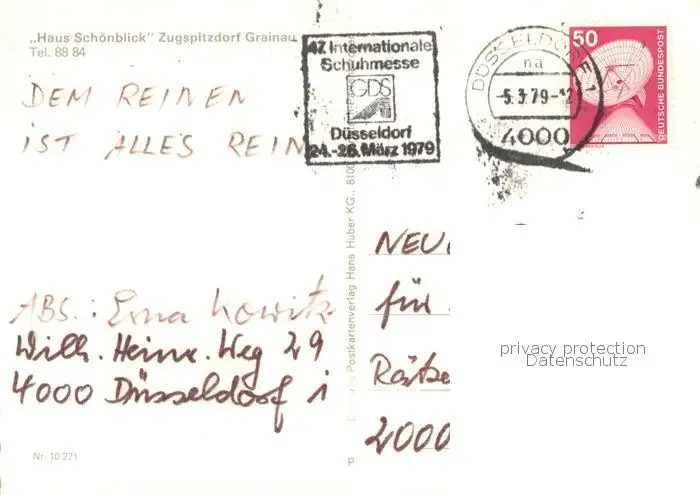 „Haus Schönblick" Zugspitzdorf Grainau
Tel. 88 84
DEM REINEN
IST ALLES REIN
47. Internationale
Schuhmesse
GDS
Düsseldorf
24.-26. März 1979
DÜSSELDORF 1
na
-5.3.79-12
4000
50
DEUTSCHE BUNDESPOST
Postkartenverlag Hans Huber KG., 8100
ABS.: Erna Kowitz
Wilh. Heinr. Weg 29
4000 Düsseldorf 1
NEU
für
Rätse
2000
privacy protection
Datenschutz
Nr. 10 271
P